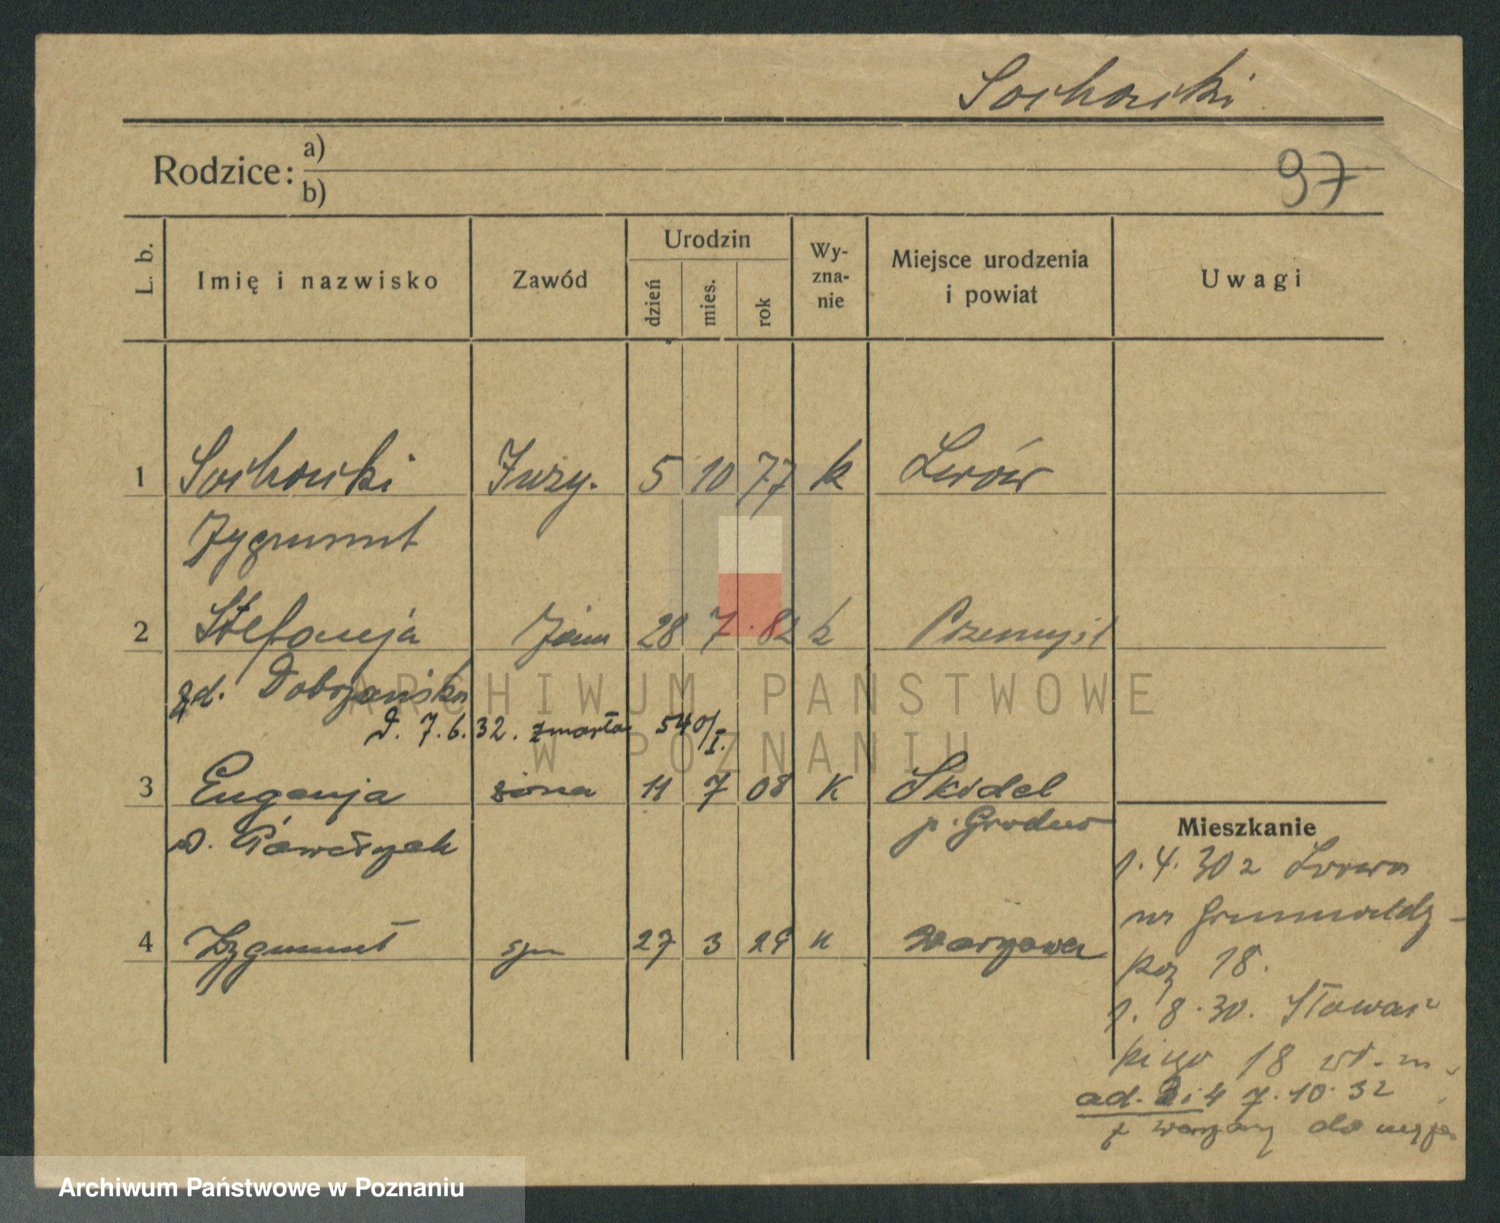 Sochowski
Rodzice: a)
b)
97
L. b.
Imię i nazwisko
Zawód
Urodzin
dzień
mies.
rok
Wy-
zna-
nie
Miejsce urodzenia
i powiat
Uwagi
1 Sochowski Inży. 5 10 77 k Lwów
Zygmunt
2 Stefanja żona 28 7 82 k Przemyśl
zd. Dobrzańska
D. 7.6.32. zmarła 540/I.
3 Eugenja 11 7 08 K Skidel
p. Grodno
D.
4 Zygmunt syn 27 3 29 K Warszawa
Mieszkanie
1.4.30 z Lwowa
na Grunwaldz-
ką 18.
1.8.30. Słowac
kiego 18
ad. 3 i 4 7.10.32
z Warszawy do
ARCHIWUM PAŃSTWOWE
W POZNANIU
Archiwum Państwowe w Poznaniu